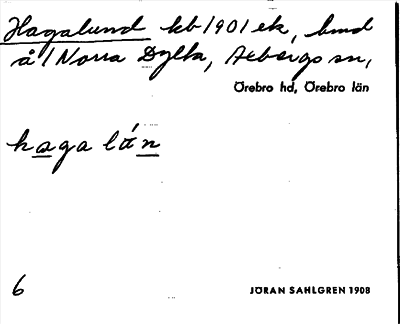 Hagalund kb 1901 ek, bmd
å 1 Norra Dylta, Axbergs sn,
Örebro hd, Örebro län
haga lún
6
JÖRAN SAHLGREN 1908